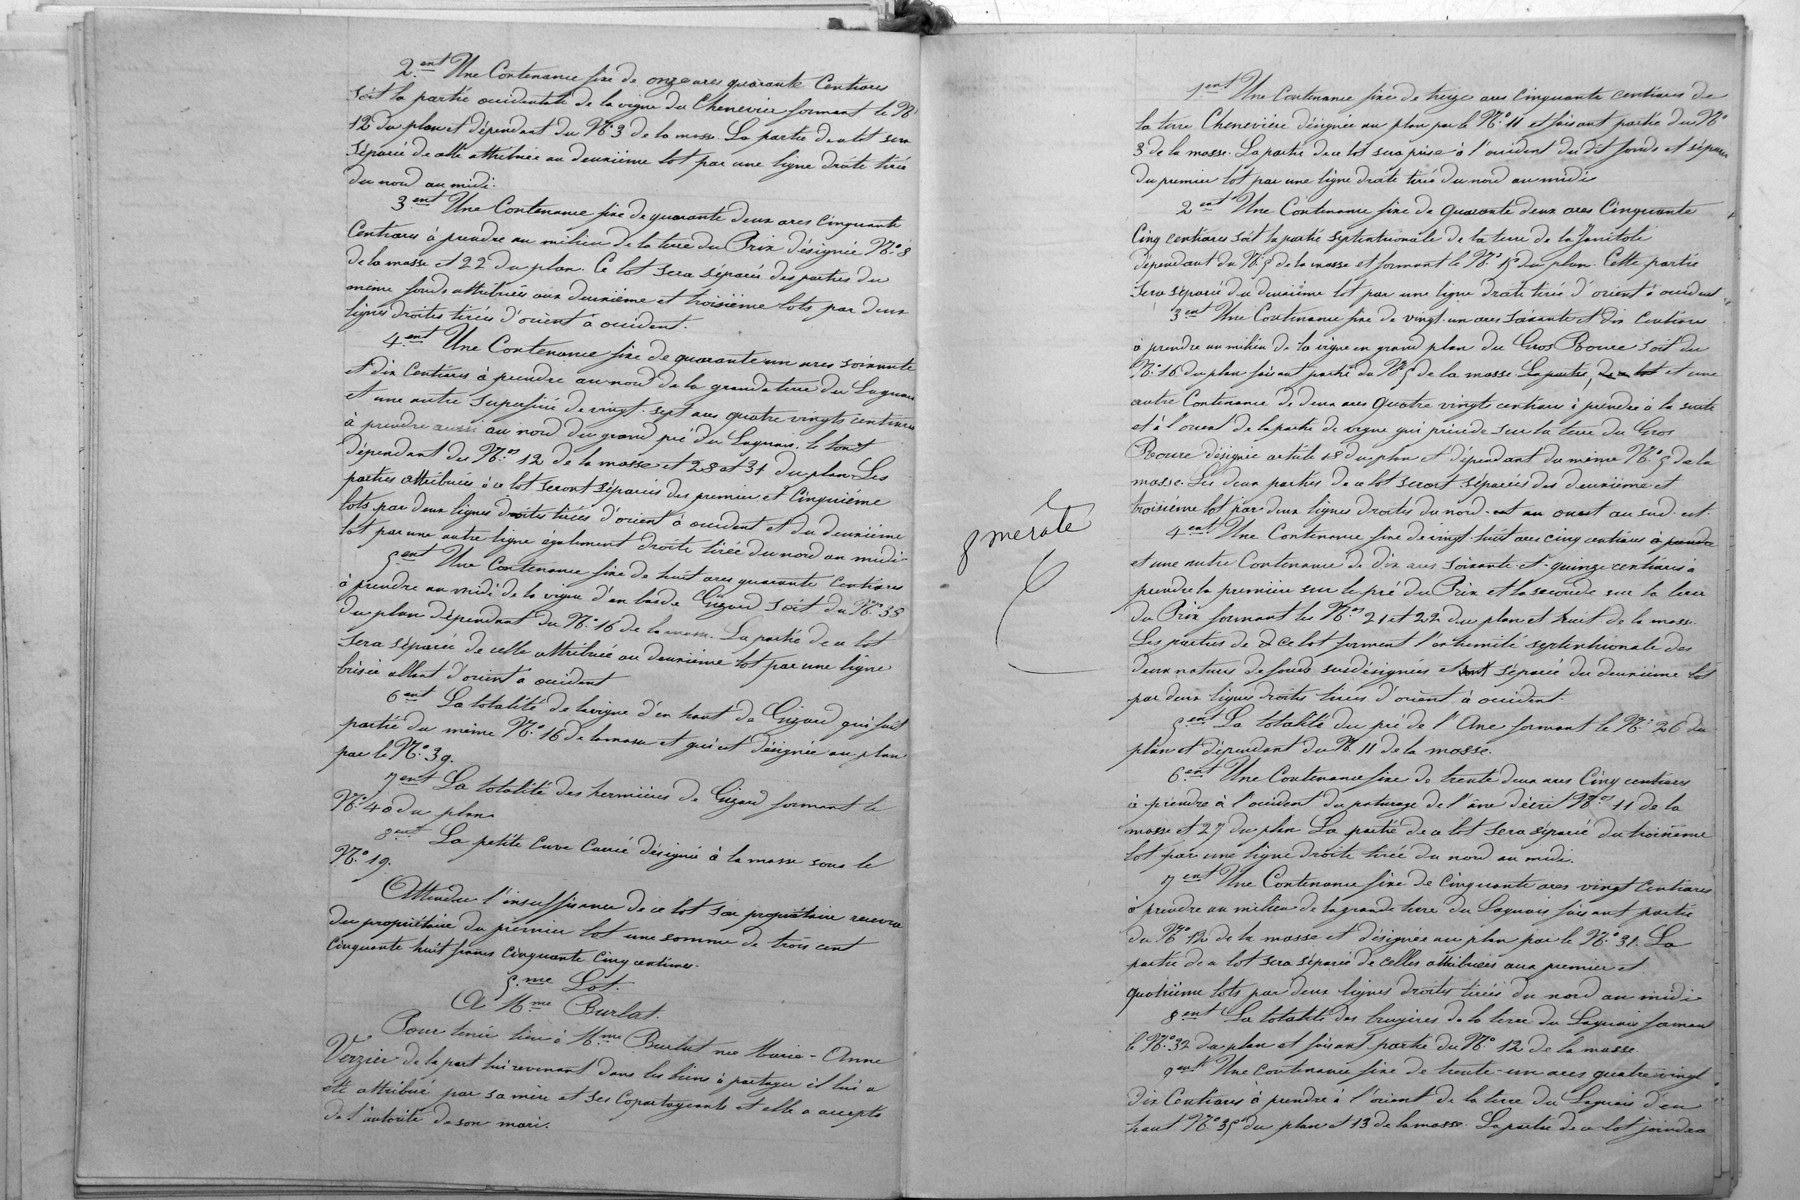 2.ent Une Contenance fixe de onze ares quarante Centiares
Soit la partie occidentale de la vigne du Chenevier formant le N°
12 du plan et dépendant du N° 3 de la masse. La partie de ce lot sera
séparée de celle attribuée au deuxième lot par une ligne droite tirée
du nord au midi.
3.ent Une Contenance fixe de quarante deux ares Cinquante
Centiares à prendre au milieu de la terre du Prix désignée N° 8
de la masse et 22 du plan. Ce lot sera séparé des parties du
même fonds attribuées aux deuxième et troisième lots par deux
lignes droites tirées d'orient à occident.
4.ent Une Contenance fixe de quarante un ares soixante
et dix Centiares à prendre au nord de la grande terre du Laguais
et une autre superficie de vingt-sept ares quatre vingts centiares
à prendre aussi au nord du grand pré du Laguais, le tout
dépendant des N.os 12 de la masse et 28 et 31 du plan. Les
parties attribuées à ce lot seront séparées des premier et Cinquième
lots par deux lignes droites tirées d'orient à occident et du deuxième
lot par une autre ligne également droite tirée du nord au midi.
5.ent Une Contenance fixe de huit ares quarante Centiares
à prendre au midi de la vigne d'en bas de Gizard soit du N° 38
du plan dépendant du N° 16 de la masse. La partie de ce lot
sera séparée de celle attribuée au deuxième lot par une ligne
brisée allant d'orient à occident
6.ent La totalité de la vigne d'en haut de Gizard qui fait
partie du même N° 16 de la masse et qui est désignée au plan
par le N° 39.
7.ent La totalité des hermières de Gizard formant le
N° 40 du plan
8.ent La petite Cuve Carrée désignée à la masse sous le
N° 19.
Attendu l'insuffisance de ce lot son propriétaire recevra
du propriétaire du premier lot une somme de trois cent
cinquante huit francs cinquante cinq centimes.
5.me Lot.
A M.me Burlat.
Pour tenir lieu à M.me Burlat née Marie-Anne
Verzier de la part lui revenant dans les biens à partager il lui a
été attribué par sa mère et ses Copartageants et elle a accepté
de l'autorité de son mari.
1.ent Une Contenance fixe de treize ares cinquante centiares de
la terre Chenevière désignée au plan par le N° 11 et faisant partie du N°
3 de la masse. La partie de ce lot sera prise à l'occident du dit fonds et séparée
du premier lot par une ligne droite tirée du nord au midi
2.ent Une Contenance fixe de Quarante deux ares Cinquante
Cinq centiares soit la partie septentrionale de la terre de la
dépendant du N° 5 de la masse et formant le N° 15 du plan. Cette partie
Sera séparée du deuxième lot par une ligne droite tirée d'orient à occident
3.ent Une Contenance fixe de vingt-un ares soixante et dix Centiares
à prendre au milieu de la vigne en grand plan du Gros Roure soit du
N° 16 du plan faisant partie du N° 5 de la masse. La partie, de ce lot et une
autre Contenance de deux ares Quatre vingts centiares à prendre à la suite
et à l'orient de la partie de vigne qui précède sur la terre du Gros
Roure désignée article 18 du plan et dépendant du même N° 5 de la
masse. Les deux parties de ce lot seront séparées des deuxième et
troisième lot par deux lignes droites du nord-est au ouest au sud-est.
4.ent Une Contenance fixe de vingt-huit ares cinq centiares à prendre
et une autre Contenance de dix ares soixante et quinze centiares à
prendre la première sur le pré du Prix et la seconde sur la terre
du Prix formant les N.os 21 et 22 du plan et huit de la masse.
Les parties de ce lot forment l'extrémité septentrionale des
deux natures de fonds susdésignées et sont séparées du deuxième lot
par deux lignes droites tirées d'orient à occident.
5.ent La totalité du pré de l'Ane formant le N° 26 du
plan et dépendant du N° 11 de la masse.
6.ent Une Contenance fixe de trente deux ares Cinq centiares
à prendre à l'occident du paturage de l'âne décrit N.os 11 de la
masse et 27 du plan La partie de ce lot sera séparée du troisième
lot par une ligne droite tirée du nord au midi.
7.ent Une Contenance fixe de cinquante ares vingt Centiares
à prendre au milieu de la grande terre du Laguais faisant partie
du N° 12 de la masse et désignée au plan par le N° 31. La
partie de ce lot sera séparée de celles attribuées aux premier et
quatrième lots par deux lignes droites tirées du nord au midi
8.ent La totalité des bruyères de la terre du Laguais formant
le N° 32 du plan et faisant partie du N° 12 de la masse.
9.ent Une contenance fixe de trente-un ares quatre vingt
dix Centiares à prendre à l'orient de la terre du Laguais d'en
haut N° 35 du plan et 13 de la masse. La partie de ce lot joindra